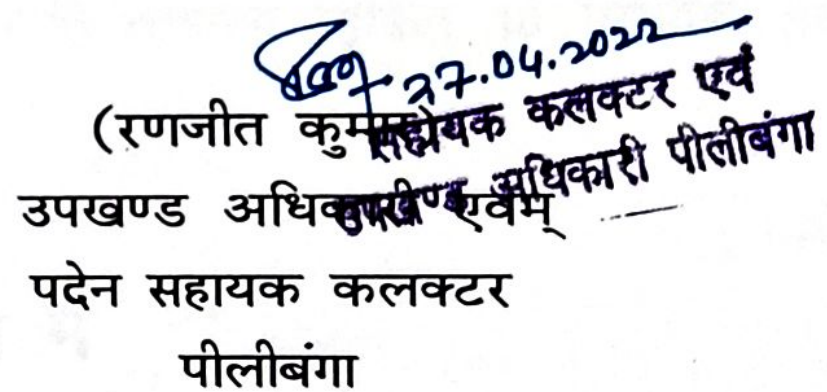 27.04.2022
सहायक कलक्टर एवं
उपखण्ड अधिकारी पीलीबंगा
(रणजीत कुमार)
उपखण्ड अधिकारी एवम्
पदेन सहायक कलक्टर
पीलीबंगा